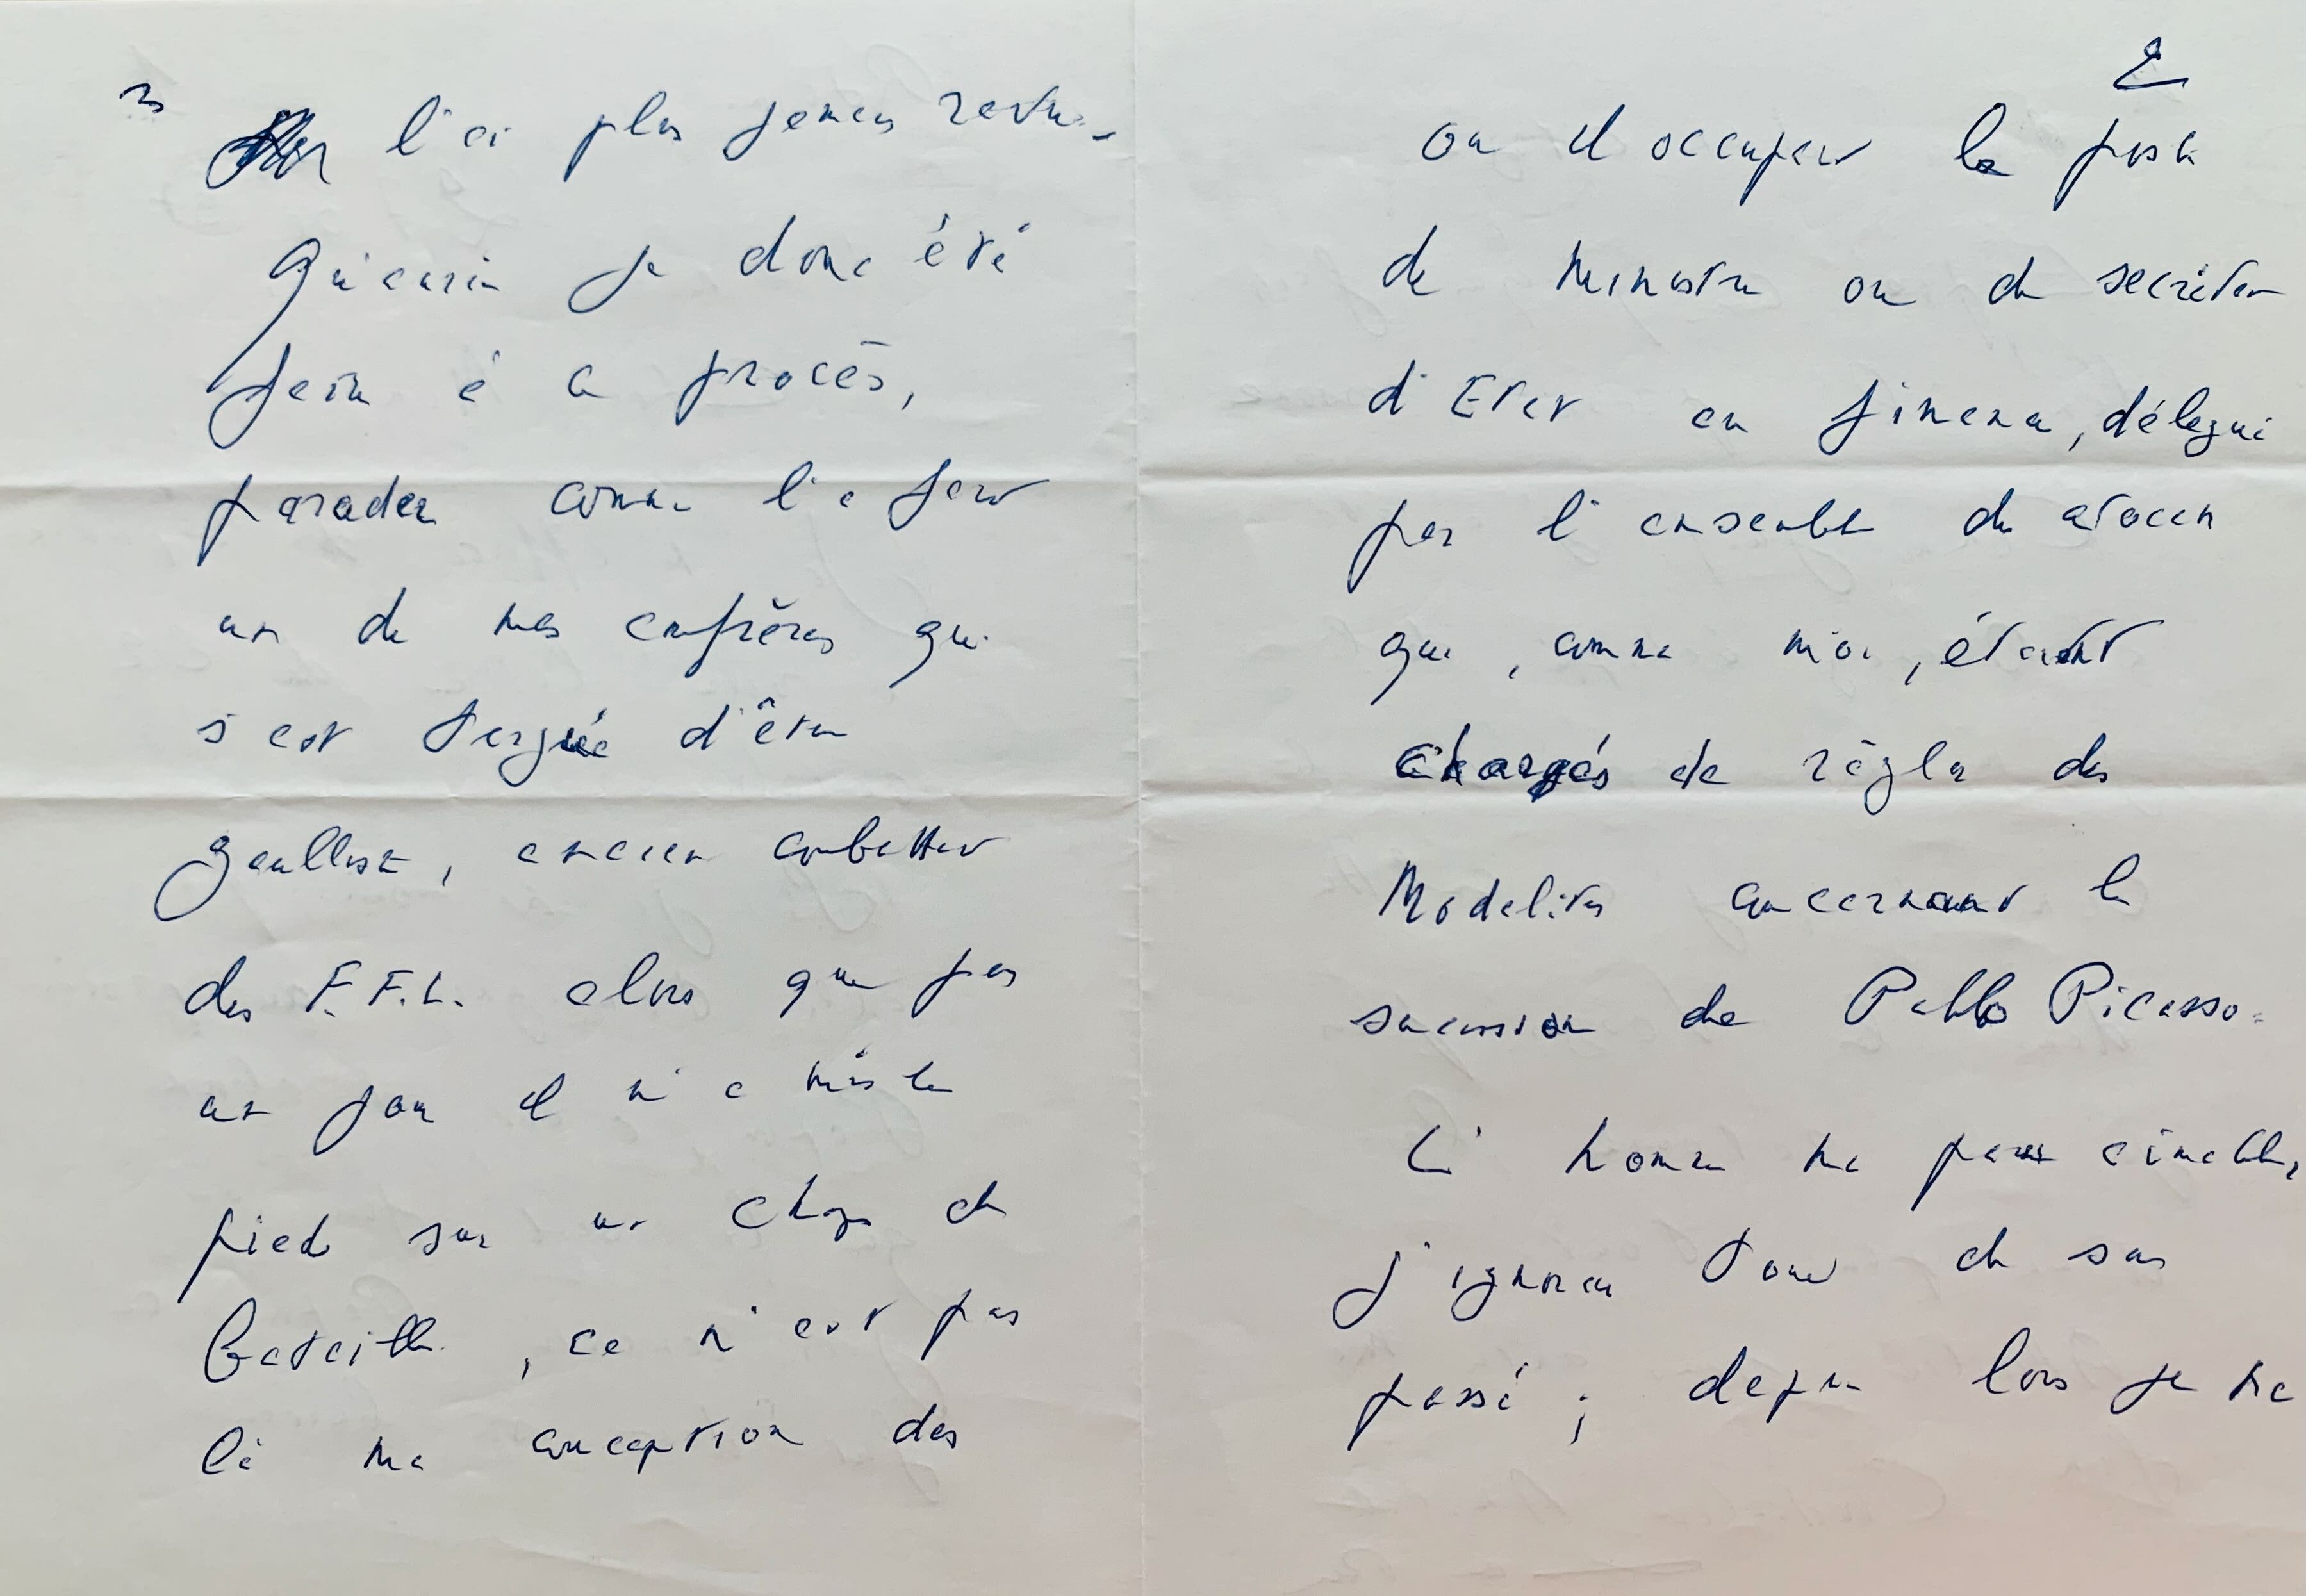 2
ou d'occuper le poste
de Ministre ou de secrétaire
d'Etat en finance, délégué
par l'ensemble des avocats
qui, comme moi, étaient
chargés de régler des
Modalités concernant la
succession de Pablo Picasso.
L'homme me parut aimable,
j'ignorais tout de son
passé ; depuis lors je ne
3
l'ai plus jamais revu.
Qu'aurais je donc été
faire à ce procès,
parader comme l'a fait
un de mes confrères qui
s'est targué d'être
gaulliste, ancien combattant
des F.F.L. alors que pas
un jour il n'a mis le
pied sur un champ de
bataille, ce n'est pas
là ma conception des